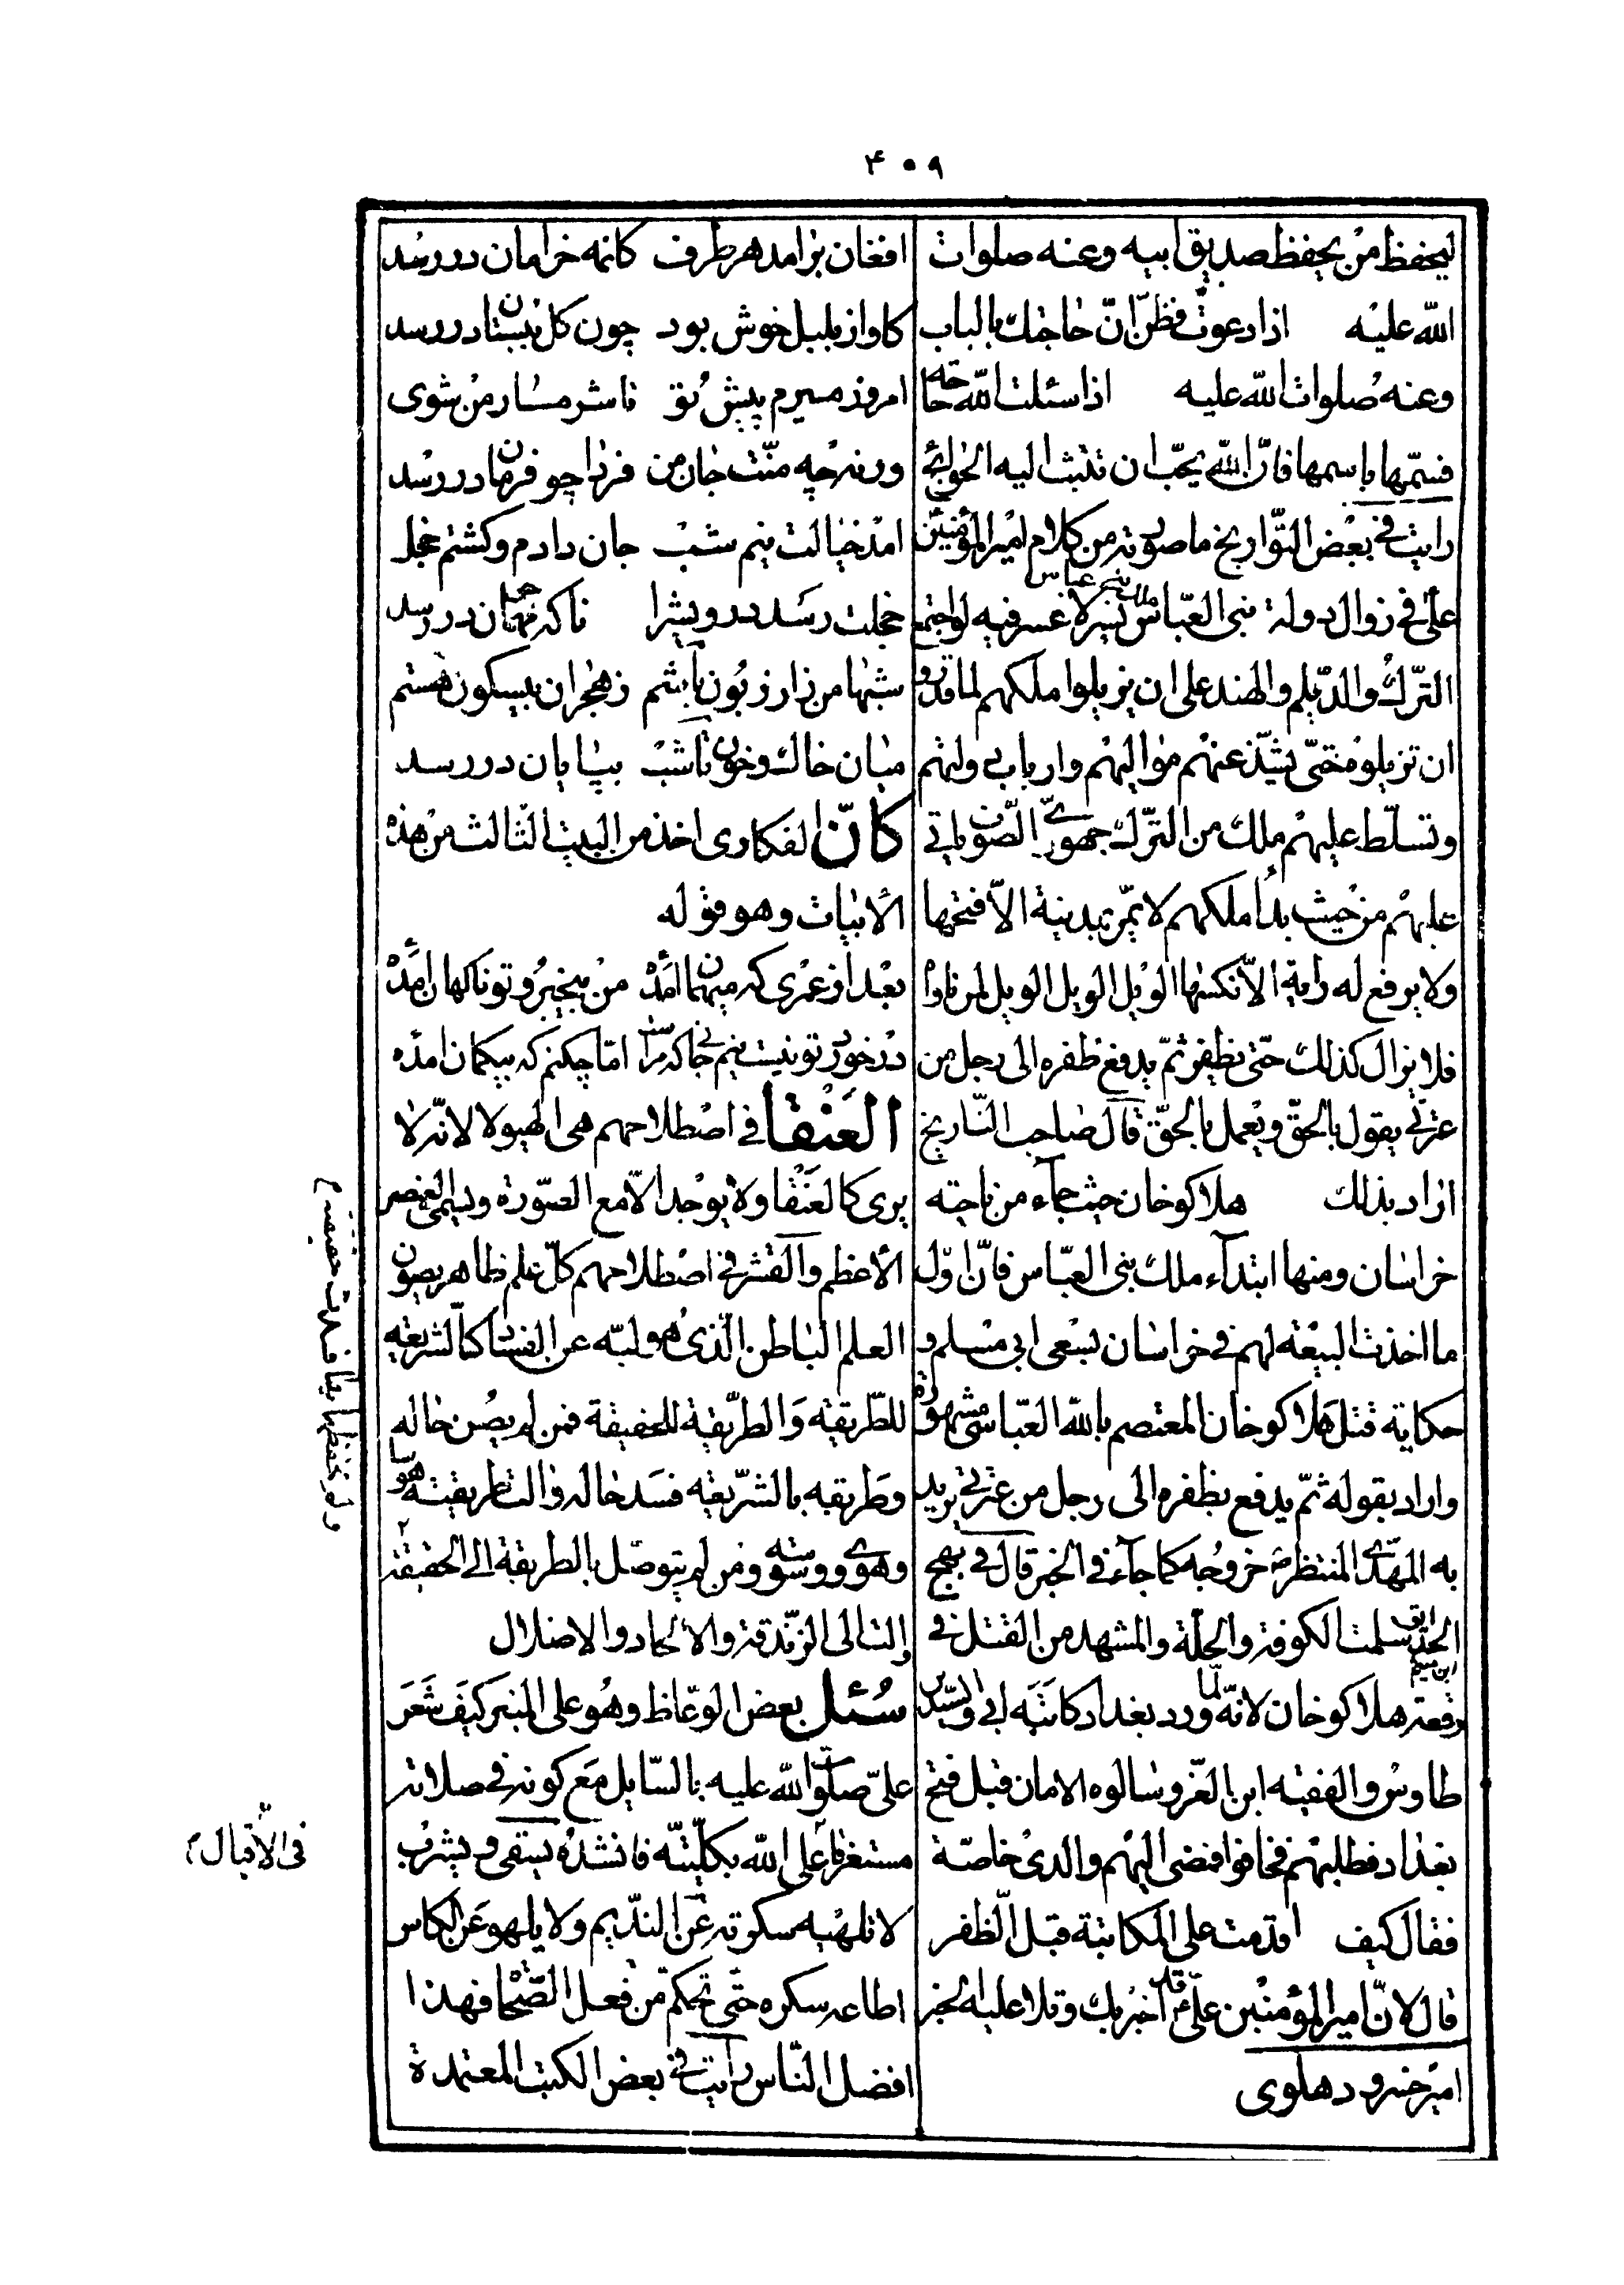 ۴۰۹
ليحفظ من يحفظ صديق ابيه وعنه صلوات
الله عليه اذا دعوت فظن ان حاجتك بالباب
وعنه صلوات الله عليه اذا سئلت الله حاجة
فسمها باسمها فان الله يحب ان تبث اليه الحوائج
رايت في بعض التواريخ ما صورته من كلام امير المؤمنين
علي في زوال دولة بني العباس ملك بني عباس يسر لا عسر فيه لو اجتمع
الترك والديلم والهند على ان يزيلوا ملكهم لما قدروا
ان تزيلوه حتى يشذ عنهم مواليهم وارباب دولتهم
وتسلط عليهم ملك من الترك جهوري الصوت ياتي
عليهم من حيث بدأ ملكهم لا يمر بمدينة الا فتحها
ولا يرفع له راية الا نكسها الويل الويل الويل لمن ناواه
فلا يزال كذلك حتى يظفر ثم يدفع ظفره الى رجل من
عترتي يقول بالحق ويعمل بالحق قال صاحب التاريخ
اراد بذلك هلاكو خان حيث جاء من ناحية
خراسان ومنها ابتداء ملك بني العباس فان اول
ما اخذت البيعة لهم في خراسان بسعى ابي مسلم و
حكاية قتل هلاكو خان المعتصم بالله العباسي مشهورة
واراد بقوله ثم يدفع بظفره الى رجل من عترتي يريد
به المهدي المنتظر خروجه كما جاء في الخبر قال في بهج
الحدائق سلمت الكوفة والحلة والمشهد من القتل في
وقعة هلاكو خان لانه لما ورد بغداد كاتبه ابي والسيد ابن
طاوس والفقيه ابن العز وسالوه الامان قبل فتح
بغداد فطلبهم فخافوا فمضى اليهم والدي خاصة
فقال كيف اقدمت على المكاتبة قبل الظفر
قال لان امير المؤمنين علي قد اخبر بك وتلا عليه الخبر
امير خسرو دهلوى
افغان برامد هر طرف كانمه خرامان در رسد
كاواز بلبل خوش بود چون گل ببستان در رسد
امروز ميرم پيش تو تا شرمسار من شوى
ورنه چه منت جان من فردا چو فرمان در رسد
امد خيالت نيم شب جان دادم و گشتم خجل
خجلت رسد درويش را ناگه چو مهمان در رسد
شبها من زار زبون باشم زهجران بيسكون هستم
ميان خاك و خون تا شب بپايان در رسد
كان الفكارى اخذ من البيت الثالث من هذه
الابيات وهو قوله
بعد از عمرى كه ميهمان امده من بيخبر و تو ناگهان امده
درخورد تو نيست نيم جانى كه مراست اما چكنم كه بيگمان امده
العنقا في اصطلاحهم هى الهيولا لانه لا
يرى كالعنقا ولا يوجد الا مع الصورة ويسمى العنصر
الاعظم والقشر في اصطلاحهم كل علم ظاهر يصون
العلم الباطن الذى هو لبه عن الفساد كالشريعة
للطريقة والطريقة للحقيقة فمن لم يصن حاله
وطريقه بالشريعة فسد حاله والت طريقته هوسا
وهوى ووسوسة ومن لم يتوصل بالطريقة الى الحقيقة
والت الى الزندقة والالحاد والاضلال
سئل بعض الوعاظ وهو على المنبر كيف شعر
علي صلوات الله عليه بالسايل مع كونه في صلاته
مستغرقا على الله بكليته فانشده يسقى ويشرب
لا تلهيه سكرته عن النديم ولا يلهو عن الكاس
اطاعه سكره حتى تحكم من فعل الصحا فهذا
افضل الناس رايت في بعض الكتب المعتمدة
ولم يحفظها بها فسدت حقيقته م
فى الاقبال م